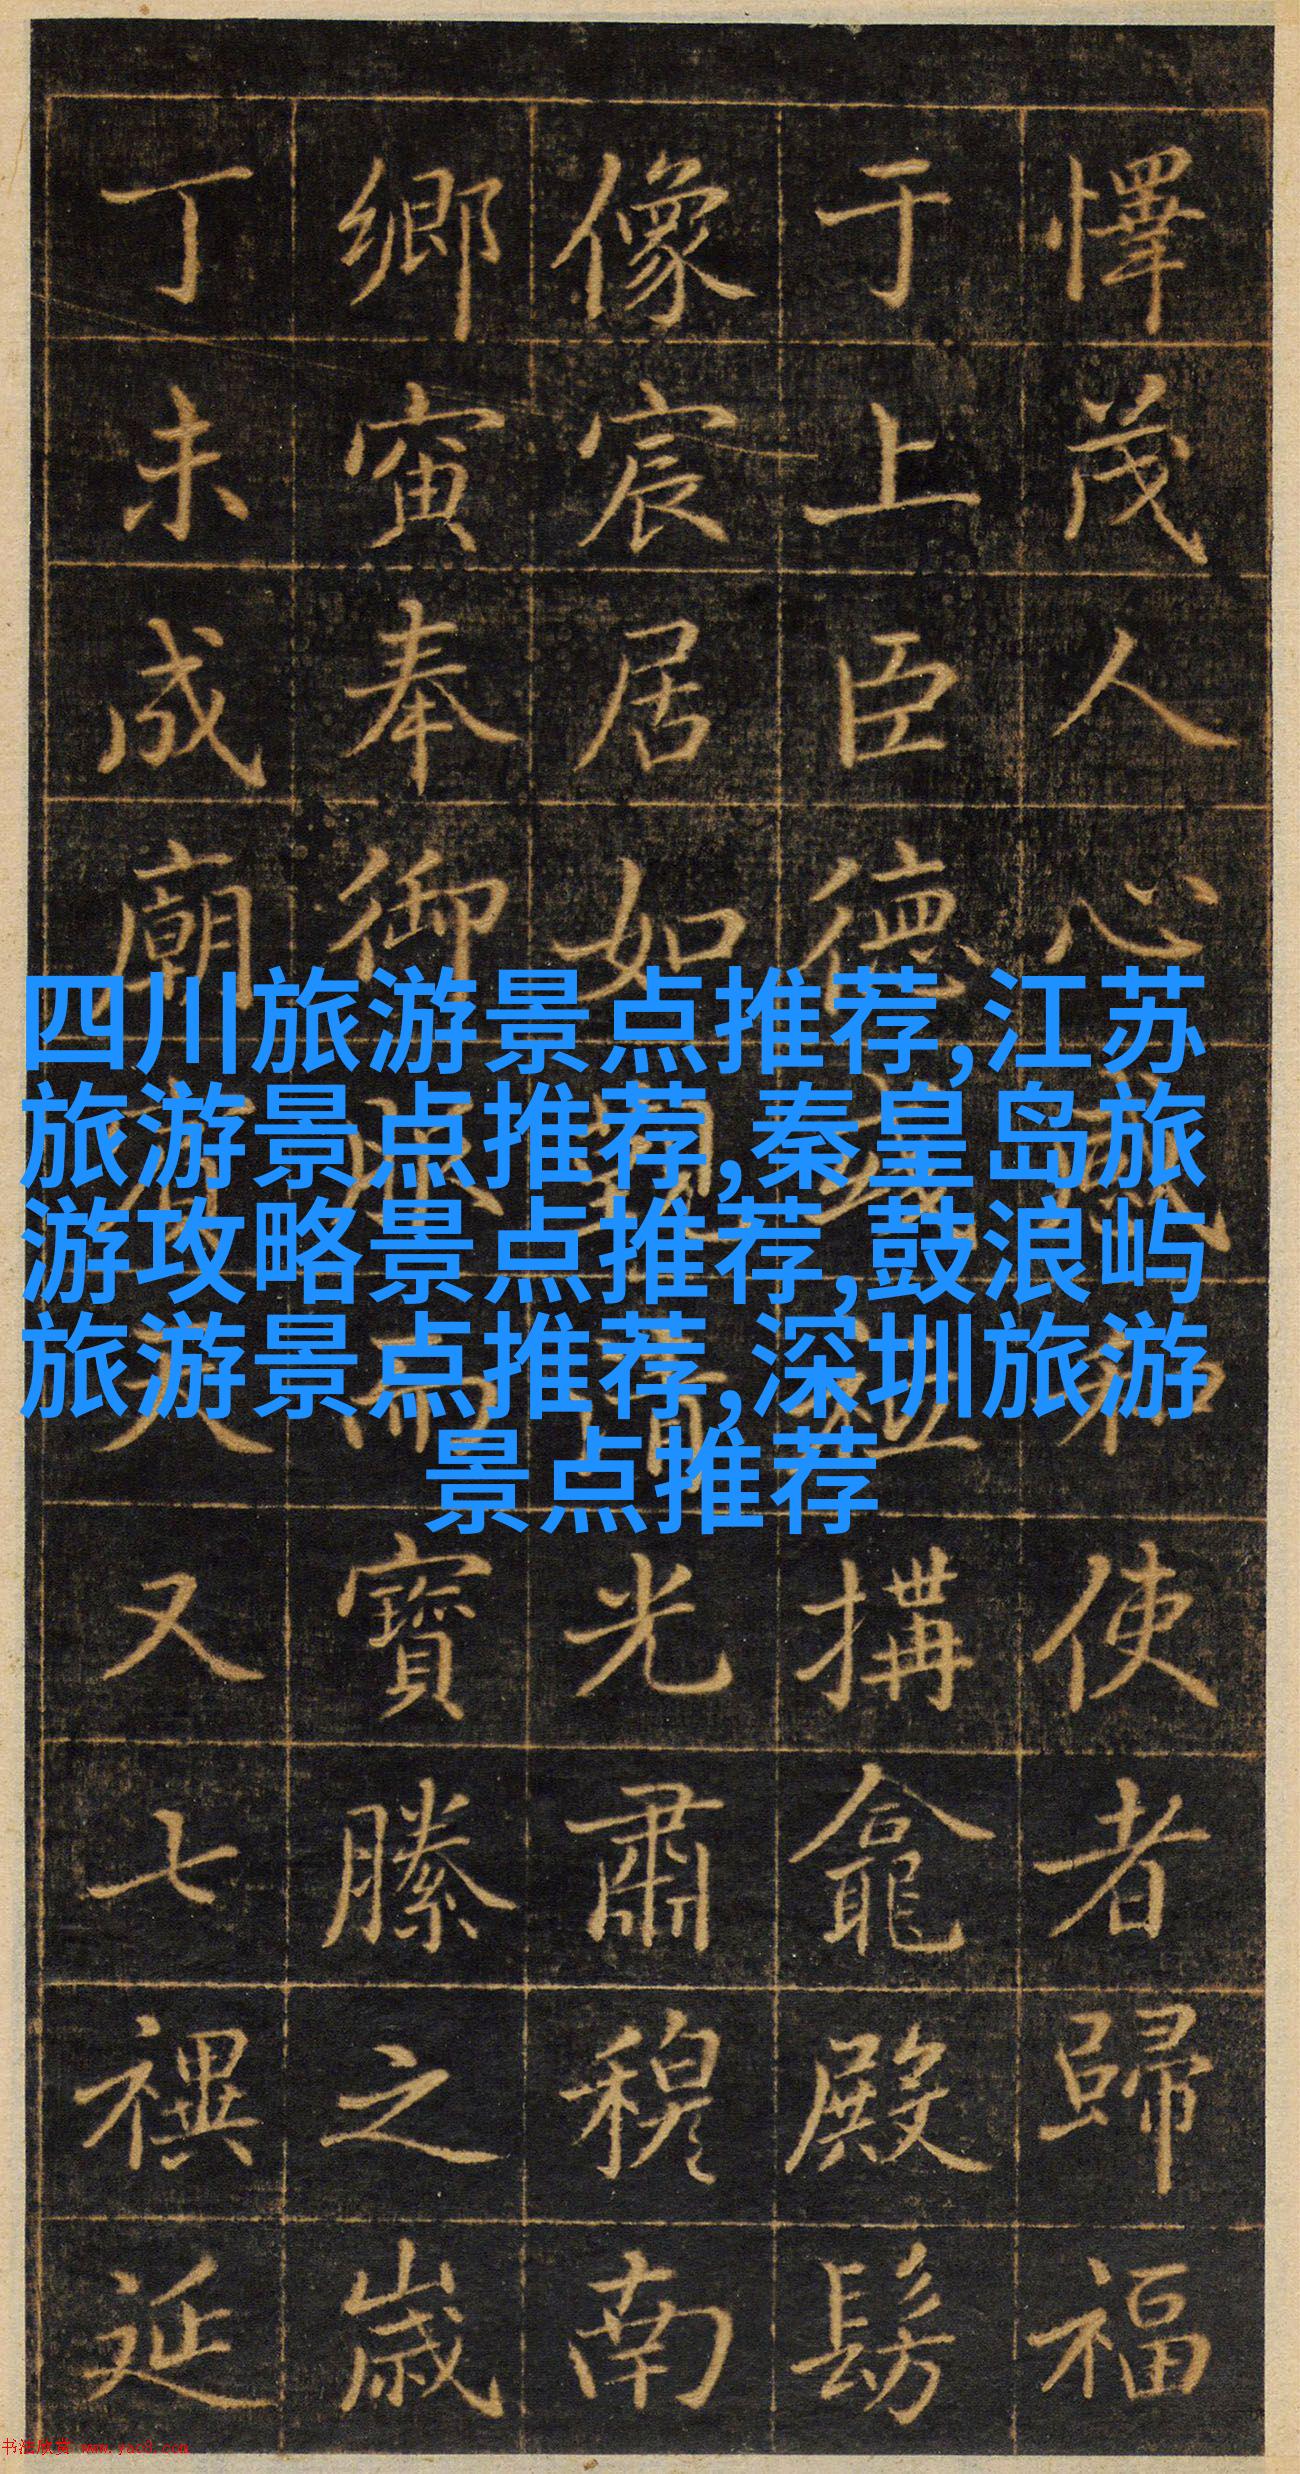 懌茂人心使者歸福
于上臣德搆龕殿髣
像宸居如光肅穆南
鄉寅奉御寶縢之歲
丁未成廟又七禩延
四川旅游景点推荐,江苏
旅游景点推荐,秦皇岛旅
游攻略景点推荐,鼓浪屿
旅游景点推荐,深圳旅游
景点推荐
书法欣赏 www.yac8.com